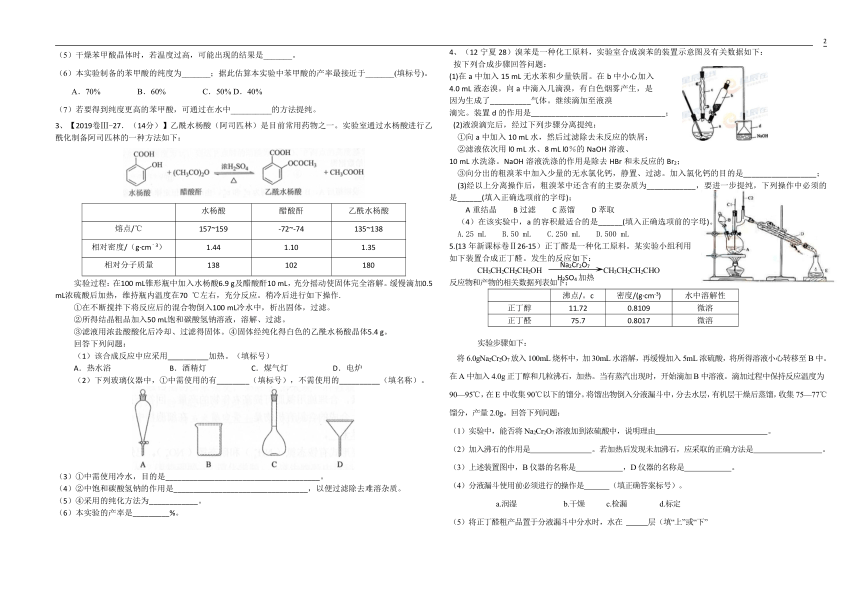 2
（5）干燥苯甲酸晶体时，若温度过高，可能出现的结果是_______。
（6）本实验制备的苯甲酸的纯度为_______；据此估算本实验中苯甲酸的产率最接近于_______(填标号)。
A．70% B．60% C．50% D．40%
（7）若要得到纯度更高的苯甲酸，可通过在水中__________的方法提纯。
3、【2019卷Ⅲ-27．（14分）】乙酰水杨酸（阿司匹林）是目前常用药物之一。实验室通过水杨酸进行乙
酰化制备阿司匹林的一种方法如下：
COOH OH +(CH₃CO)₂O 浓H₂SO₄ △ COOH OCOCH₃ +CH₃COOH
水杨酸 醋酸酐 乙酰水杨酸
水杨酸 醋酸酐 乙酰水杨酸
熔点/℃ 157~159 -72~-74 135~138
相对密度/（g·cm⁻³） 1.44 1.10 1.35
相对分子质量 138 102 180
实验过程：在100 mL锥形瓶中加入水杨酸6.9 g及醋酸酐10 mL，充分摇动使固体完全溶解。缓慢滴加0.5
mL浓硫酸后加热，维持瓶内温度在70 ℃左右，充分反应。稍冷后进行如下操作.
①在不断搅拌下将反应后的混合物倒入100 mL冷水中，析出固体，过滤。
②所得结晶粗品加入50 mL饱和碳酸氢钠溶液，溶解、过滤。
③滤液用浓盐酸酸化后冷却、过滤得固体。④固体经纯化得白色的乙酰水杨酸晶体5.4 g。
回答下列问题：
（1）该合成反应中应采用__________加热。（填标号）
A．热水浴 B．酒精灯 C．煤气灯 D．电炉
（2）下列玻璃仪器中，①中需使用的有________（填标号），不需使用的__________（填名称）。
A B C D
（3）①中需使用冷水，目的是______________________________________。
（4）②中饱和碳酸氢钠的作用是_________________________________，以便过滤除去难溶杂质。
（5）④采用的纯化方法为____________。
（6）本实验的产率是_________%。
4、（12 宁夏 28）溴苯是一种化工原料，实验室合成溴苯的装置示意图及有关数据如下：
按下列合成步骤回答问题：
(1)在 a 中加入 15 mL 无水苯和少量铁屑。在 b 中小心加入
4.0 mL 液态溴。向 a 中滴入几滴溴，有白色烟雾产生，是
因为生成了__________气体。继续滴加至液溴
滴完。装置 d 的作用是_________________________________；
(2)液溴滴完后，经过下列步骤分离提纯：
①向 a 中加入 10 mL 水，然后过滤除去未反应的铁屑；
②滤液依次用 l0 mL 水、8 mL l0％的 NaOH 溶液、
10 mL 水洗涤。NaOH 溶液洗涤的作用是除去 HBr 和未反应的 Br₂；
③向分出的粗溴苯中加入少量的无水氯化钙，静置、过滤。加入氯化钙的目的是__________________；
(3)经以上分离操作后，粗溴苯中还含有的主要杂质为____________，要进一步提纯，下列操作中必须的
是______(填入正确选项前的字母)；
A 重结晶 B 过滤 C 蒸馏 D 萃取
（4）在该实验中，a 的容积最适合的是______(填入正确选项前的字母)。
A.25 mL B.50 mL C.250 mL D.500 mL
NaOH
5.(13 年新课标卷Ⅱ26·15）正丁醛是一种化工原料。某实验小组利用
如下装置合成正丁醛。发生的反应如下：
CH₃CH₂CH₂CH₂OH Na₂Cr₂O₇ H₂SO₄加热 CH₃CH₂CH₂CHO
反应物和产物的相关数据列表如下：
沸点/。c 密度/(g·cm⁻³) 水中溶解性
正丁醇 11.72 0.8109 微溶
正丁醛 75.7 0.8017 微溶
实验步骤如下：
将 6.0gNa₂Cr₂O₇ 放入 100mL 烧杯中，加 30mL 水溶解，再缓慢加入 5mL 浓硫酸，将所得溶液小心转移至 B 中。
在 A 中加入 4.0g 正丁醇和几粒沸石，加热。当有蒸汽出现时，开始滴加 B 中溶液。滴加过程中保持反应温度为
90—95℃，在 E 中收集 90℃以下的馏分。将馏出物倒入分液漏斗中，分去水层，有机层干燥后蒸馏，收集 75—77℃
馏分，产量 2.0g。回答下列问题：
（1）实验中，能否将 Na₂Cr₂O₇ 溶液加到浓硫酸中，说明理由____________________________。
（2）加入沸石的作用是________________。若加热后发现未加沸石，应采取的正确方法是__________________。
（3）上述装置图中，B 仪器的名称是____________，D 仪器的名称是____________。
（4）分液漏斗使用前必须进行的操作是______（填正确答案标号）。
a.润湿 b.干燥 c.检漏 d.标定
（5）将正丁醛粗产品置于分液漏斗中分水时，水在 ______层（填“上”或“下”